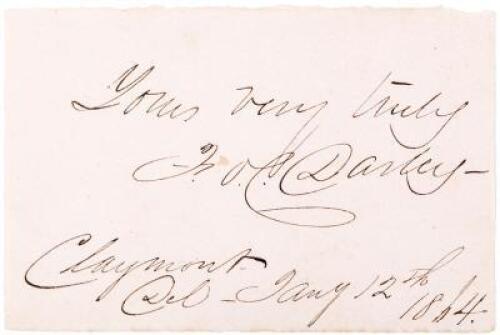 Yours very truly
F. O. C. Darley
Claymont
Del - Jany 12th
1864.